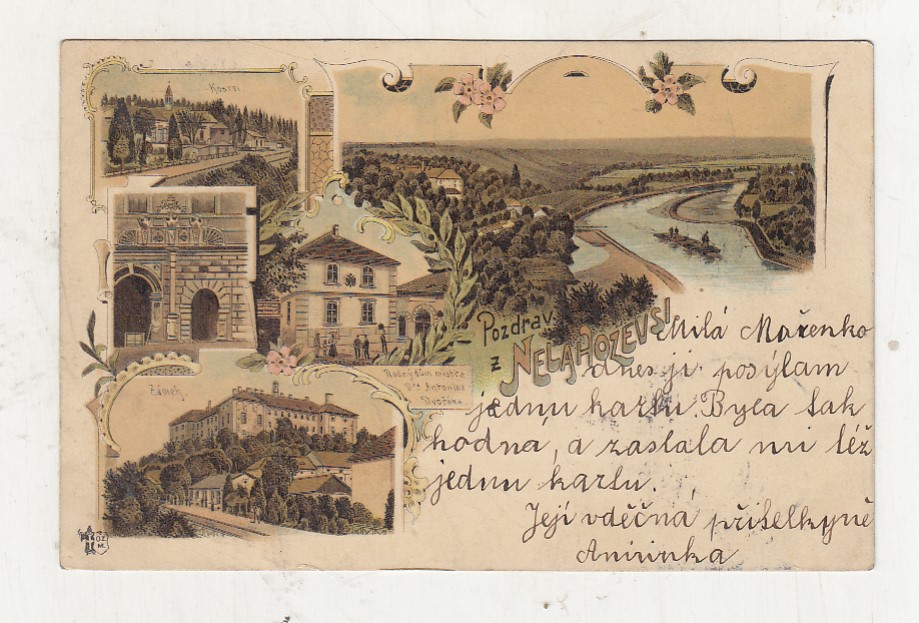 Pozdrav
z NELAHOZEVSI
Rodný dům mistra
Dra Antonína
Dvořáka
Zámek.
Milá Mařenko
dnes ji posýlam
jednu kartu. Byla tak
hodna, a zaslala mi též
jednu kartu.
Její vděčná přítelkyně